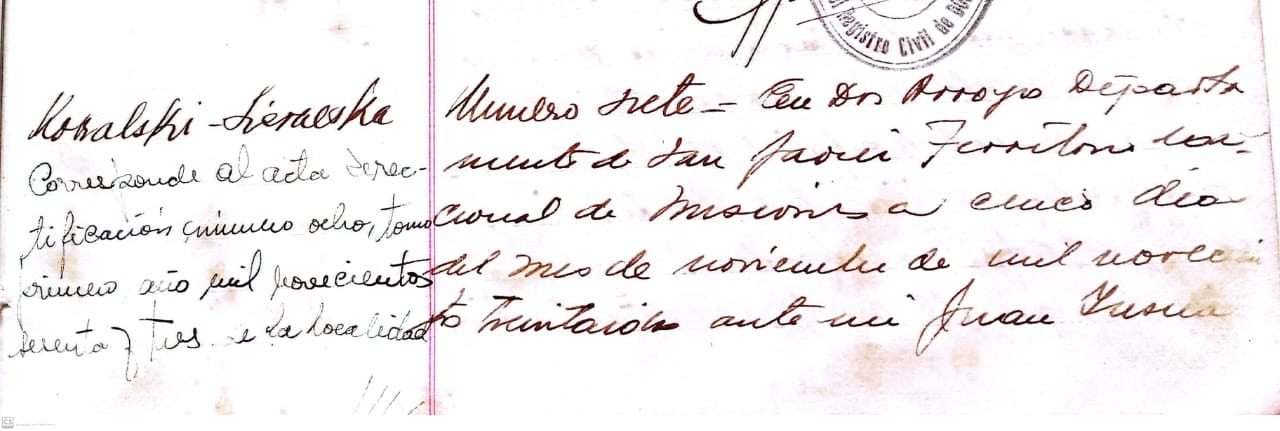 Registro Civil de
Kowalski -
Corresponde al acta de rec-
tificación, número ocho, tomo
primero, año mil novecientos
sesenta y tres de la localidad
Numero siete = En Dos Arroyos Departa
mento de San Javier Territorio Na-
cional de Misiones a cinco dias
del mes de noviembre de mil novecien
to treintaidos ante mi Juan